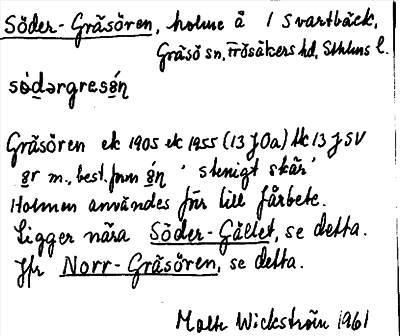 Söder-Gräsören, holme å 1 Svartbäck,
Gräsö sn, Frösåkers hd, Sthlms l.
sǿdərgresø̀n
Gräsören ek 1905 ek 1955 (13 J0a) tk 13 J SV
ør m., best. form ǿn 'stenigt skär'
Holmen användes förr till fårbete.
Ligger nära Söder-Gället, se detta.
Jfr Norr-Gräsören, se detta.
Malte Wickström 1961